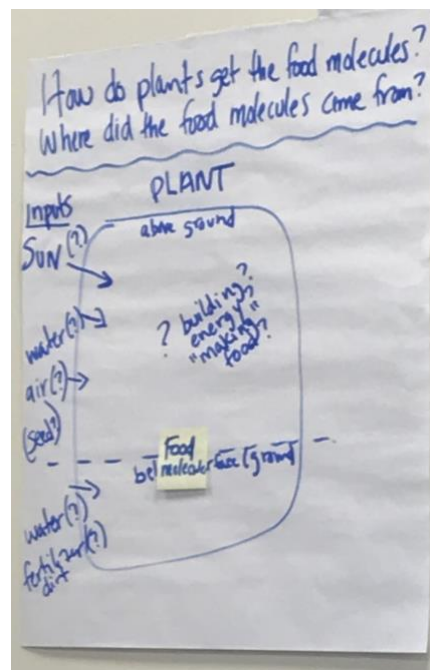 How do plants get the food molecules?
Where did the food molecules come from?
PLANT
Inputs
above ground
SUN (?)
water(?)
air(?)
(seed?)
? building?
energy?
"making"
food?
Food
molecules
(ground
water(?)
fertilizer(?)
dirt